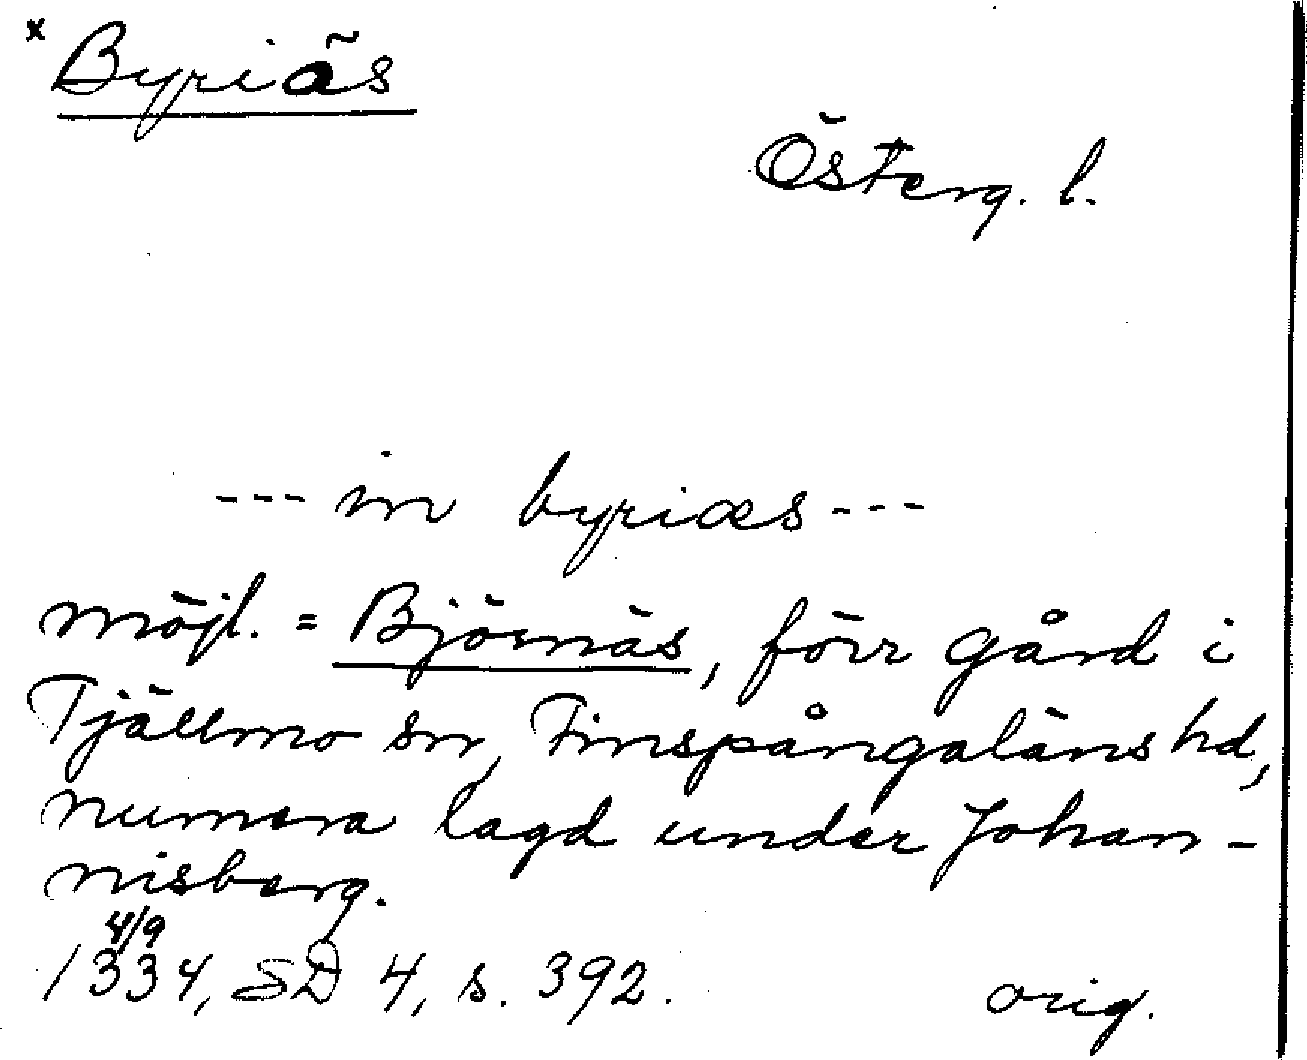 x Byriäs
Österg. l.
--- in byriæs ---
möjl. = Björnäs, förr gård i
Tjällmo sn, Finspångaläns hd,
numera lagd under Johan-
nisberg.
4/9
1334, SD 4, s. 392.
orig.